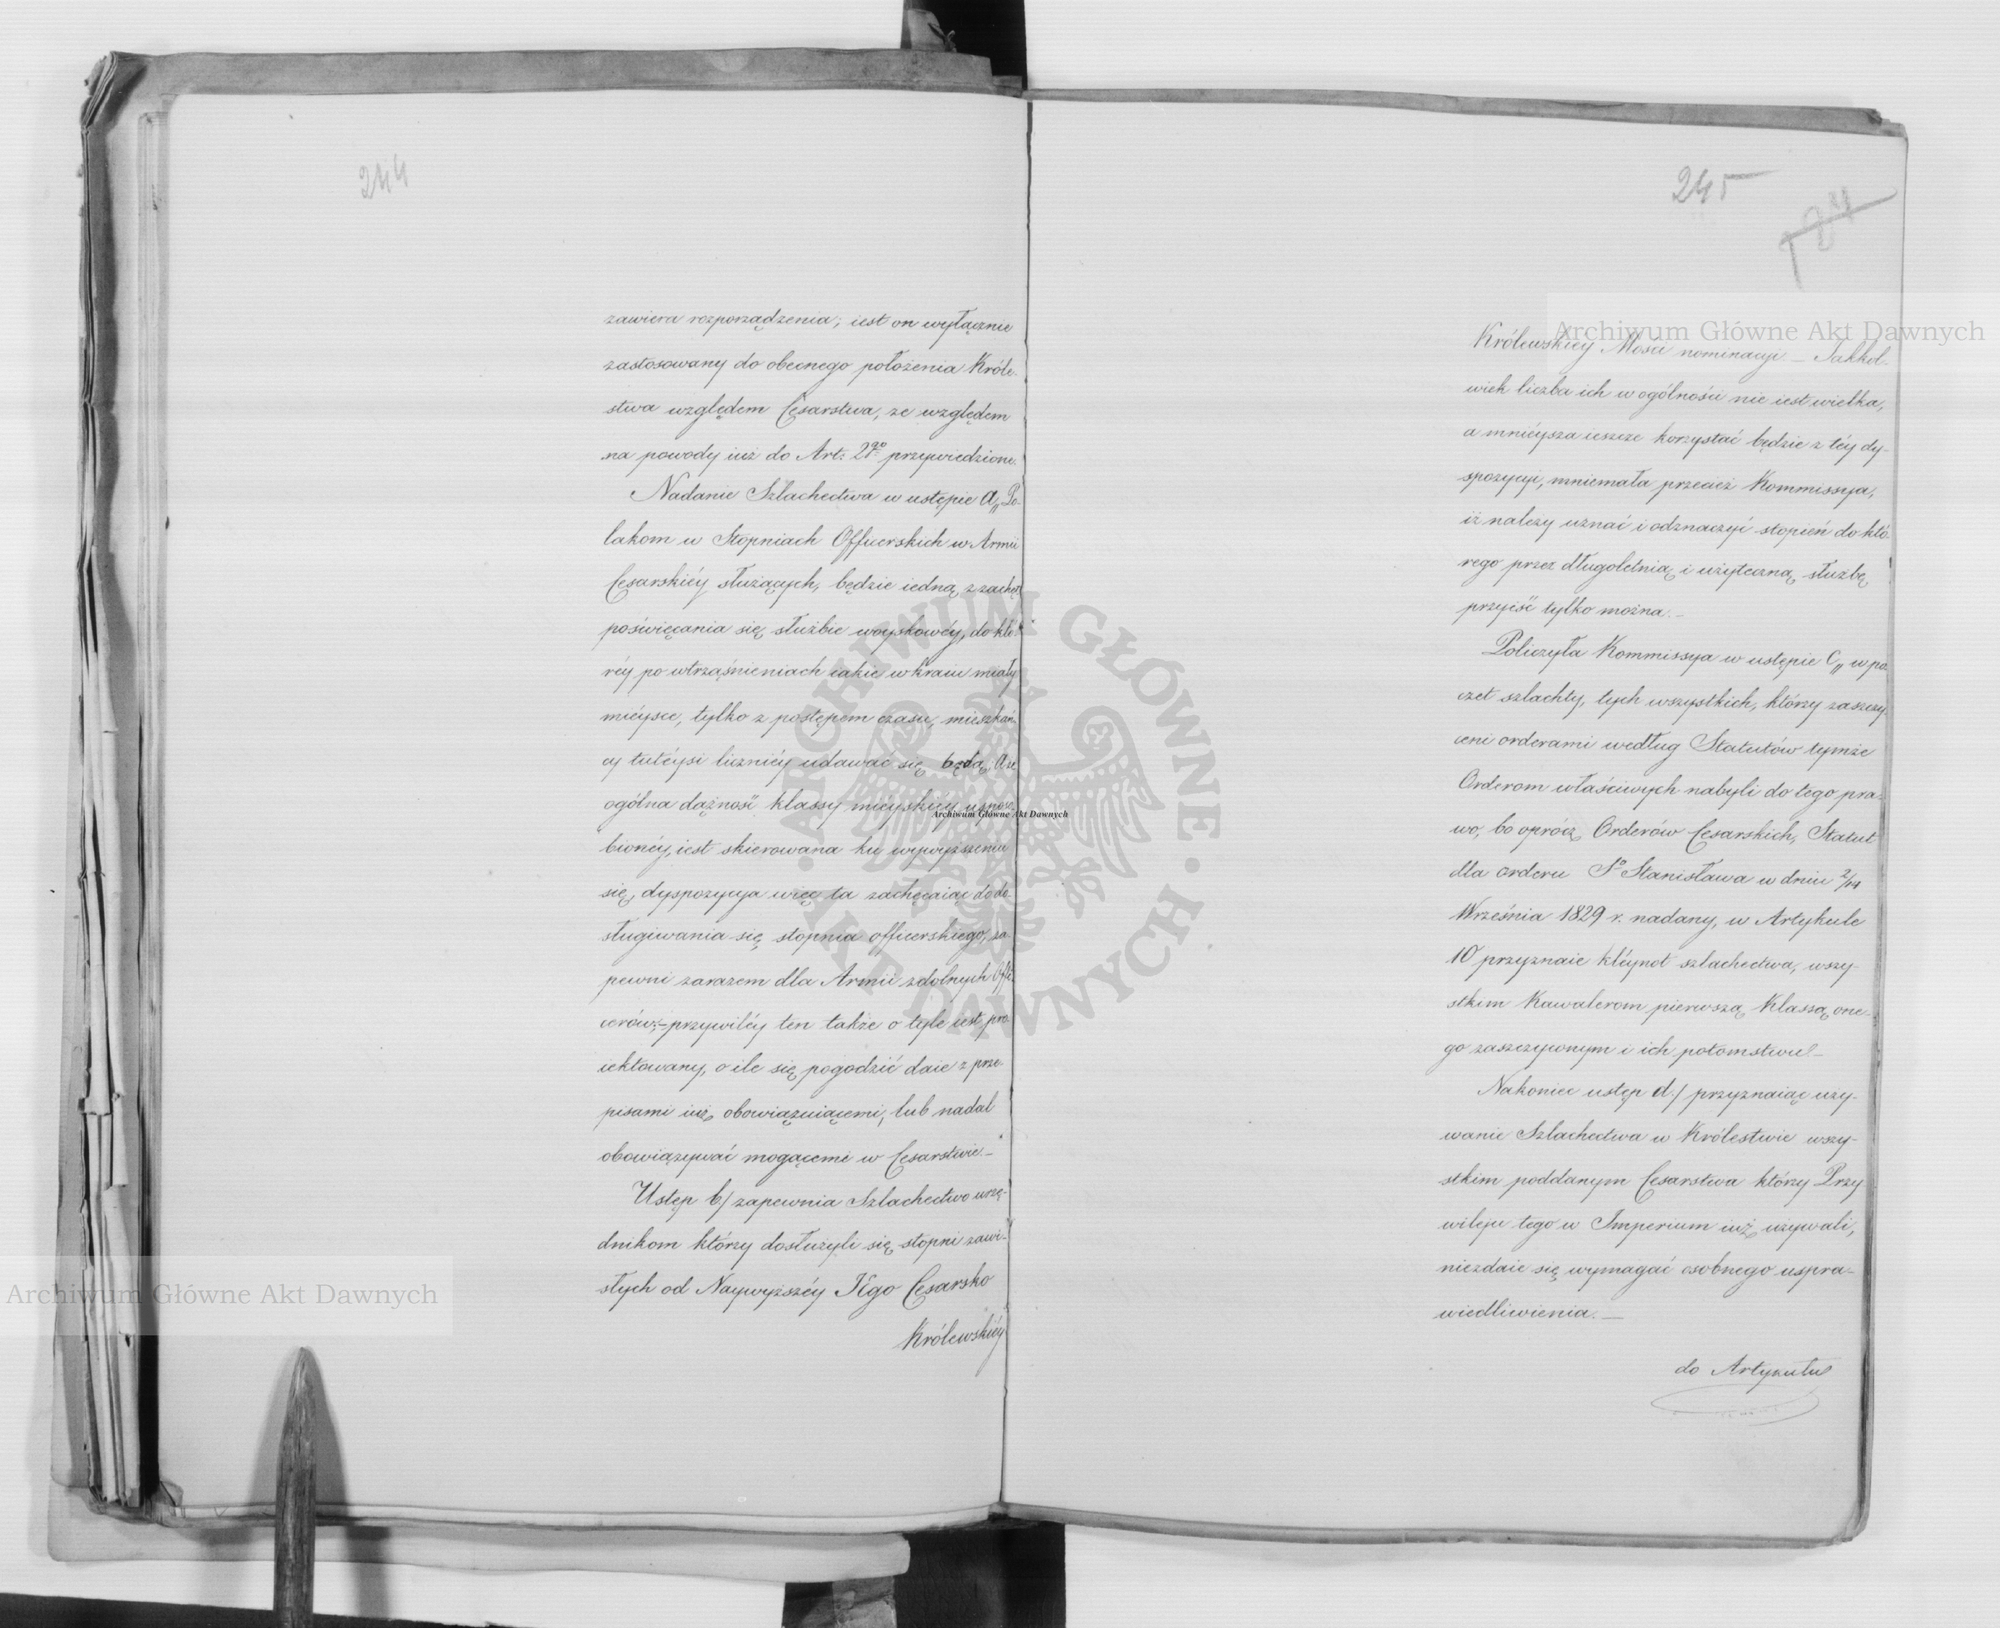 244
zawiera rozporządzenia; iest on wyłącznie
zastosowany do obecnego położenia Króle-
stwa względem Cesarstwa, ze względem
na powody iuż do Art: 2go przywiedzione.
Nadanie Szlachectwa w ustępie a,, Po-
lakom w Stopniach Officerskich w Armii
Cesarskiéy służących, będzie iedną z zachęt
poświęcania się służbie woyskowéy, do któ-
réy po wtrząśnieniach iakie w kraiu miały
mieysce, tylko z postępem czasu, mieszkań-
cy tutéysi liczniéy udawać się będą; a że
ogólna dążność klassy mieyskiéy usposo-
bionéy, iest skierowana ku wywyższeniu
się, dyspozycya więc ta zachęcaiąc do do-
sługiwania się stopnia officerskiego, za-
pewni zarazem dla Armii zdolnych Offi-
cerów;– przywiléy ten także o tyle iest pro-
iektowany, o ile się pogodzić daie z prze-
pisami iuż obowiązuiącemi, lub nadal
obowiązywać mogącemi w Cesarstwie.–
Ustęp b/ zapewnia Szlachectwo urzę-
dnikom którzy dosłużyli się stopni zawi-
słych od Naywyższéy JEgo Cesarsko
Królewskiéy
245
Królewskiéy Mości nominacyi – Jakkol-
wiek liczba ich w ogólności nie iest wielka,
a mnieysza ieszcze korzystać będzie z téy dy-
spozycyi, mniemała przecież Kommissya,
iż należy uznać i odznaczyć stopień do któ-
rego przez długoletnią i użyteczną służbę
przyiść tylko można.–
Policzyła Kommissya w ustępie C,, w po-
czet szlachty, tych wszystkich, którzy zaszczy-
ceni orderami według Statutów tymże
Orderom właściwych nabyli do tego pra-
wo, bo oprócz Orderów Cesarskich, Statut
dla orderu So Stanisława w dniu 2/14
Września 1829 r. nadany, w Artykule
10 przyznaie kléynot szlachectwa, wszy-
stkim Kawalerom pierwszą Klassą one-
go zaszczyconym i ich potomstwu.–
Nakoniec ustęp d./ przyznaiąc uży-
wanie Szlachectwa w Królestwie wszy-
stkim poddanym Cesarstwa którzy Przy
wileju tego w Imperium iuż używali,
niezdaie się wymagać osobnego uspra-
wiedliwienia.–
do Artykułu
Archiwum Główne Akt Dawnych
Archiwum Główne Akt Dawnych
Archiwum Główne Akt Dawnych
ARCHIWUM GŁÓWNE · AKT DAWNYCH ·